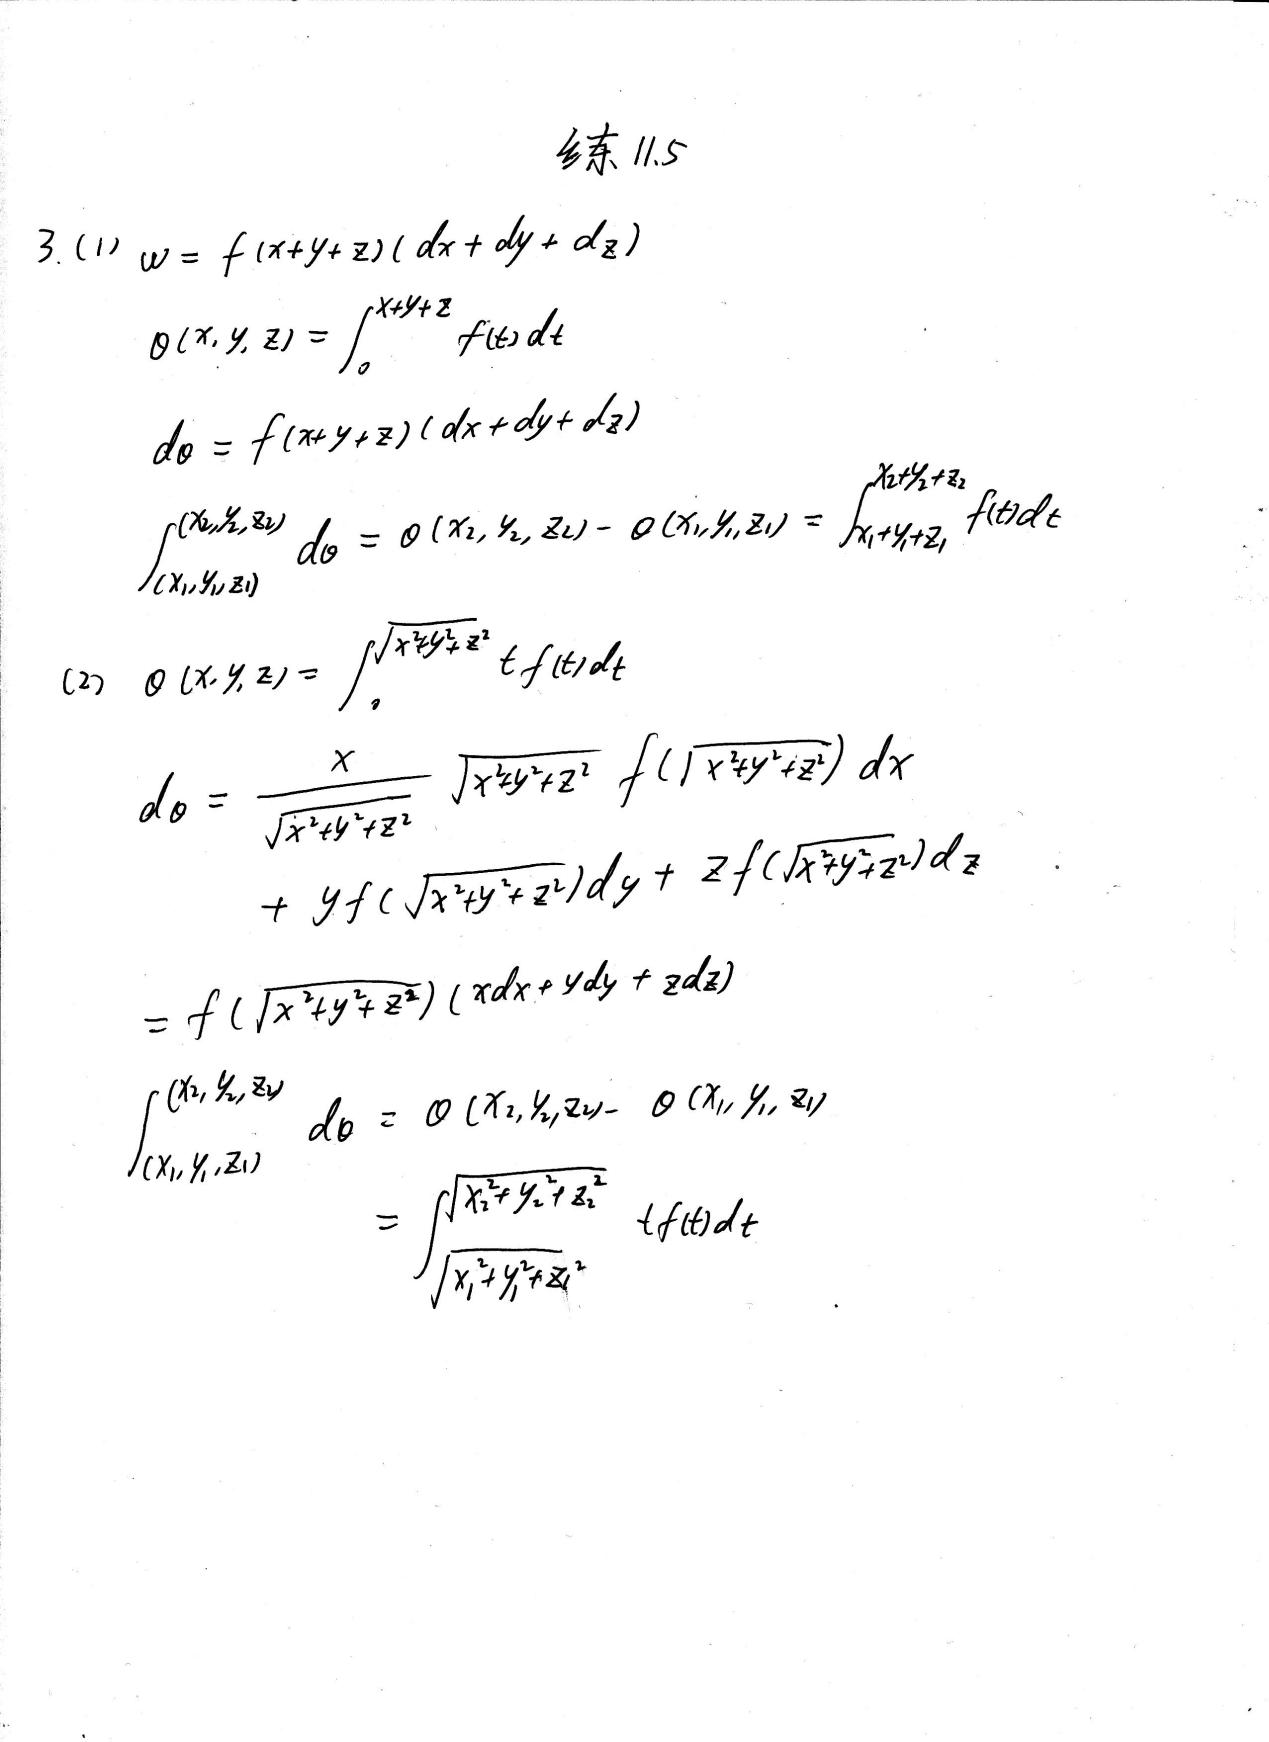 练 11.5
3. (1) w = f(x+y+z)(dx+dy+dz)
θ(x, y, z) = ∫_0^{x+y+z} f(t)dt
dθ = f(x+y+z)(dx+dy+dz)
∫_{(x₁,y₁,z₁)}^{(x₂,y₂,z₂)} dθ = θ(x₂, y₂, z₂) - θ(x₁, y₁, z₁) = ∫_{x₁+y₁+z₁}^{x₂+y₂+z₂} f(t)dt
(2) θ(x, y, z) = ∫_0^{√(x²+y²+z²)} t f(t)dt
dθ = x/√(x²+y²+z²) √(x²+y²+z²) f(√(x²+y²+z²)) dx
+ y f(√(x²+y²+z²))dy + z f(√(x²+y²+z²))dz
= f(√(x²+y²+z²))(xdx+ydy+zdz)
∫_{(x₁,y₁,z₁)}^{(x₂,y₂,z₂)} dθ = θ(x₂, y₂, z₂) - θ(x₁, y₁, z₁)
= ∫_{√(x₁²+y₁²+z₁²)}^{√(x₂²+y₂²+z₂²)} t f(t)dt